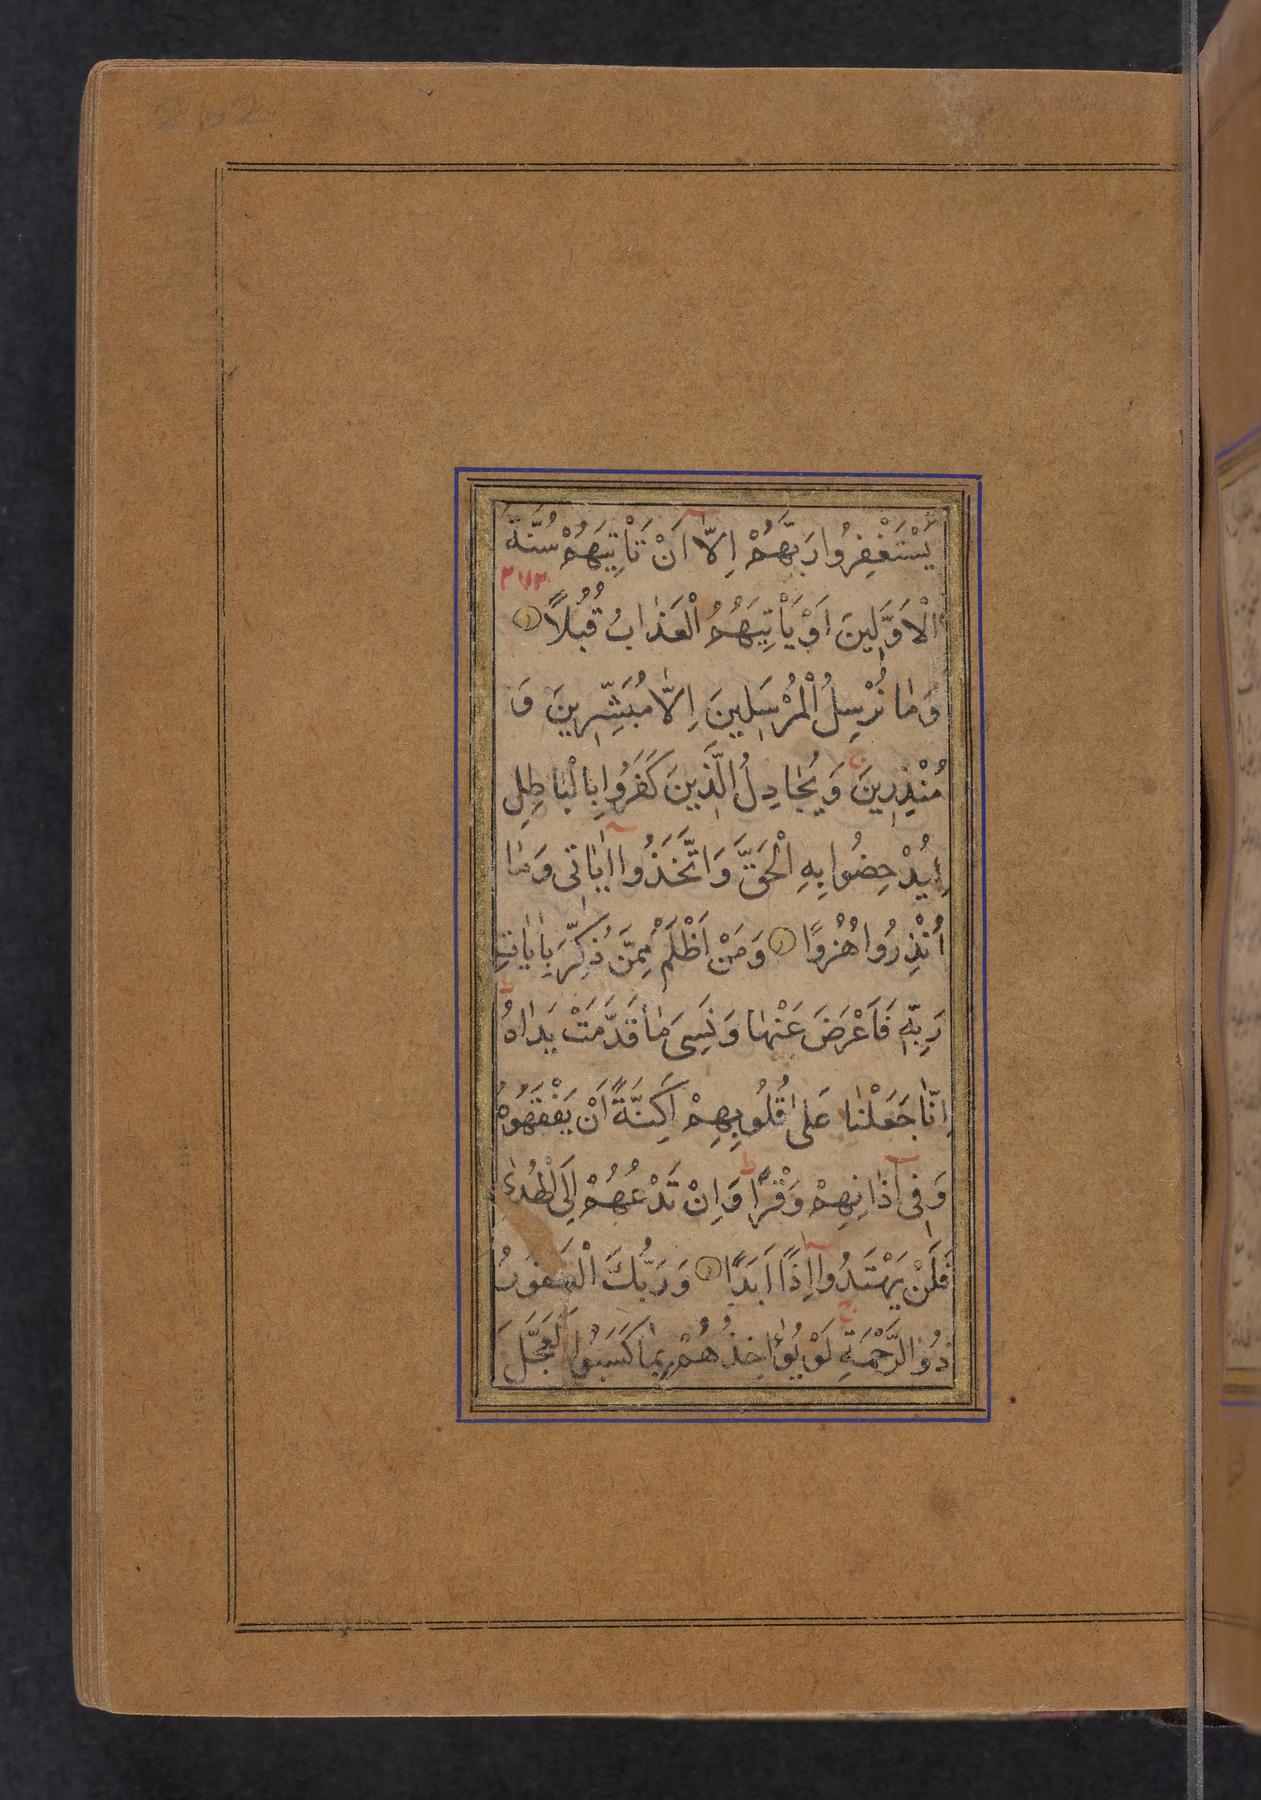 202
يَسْتَغْفِرُوا رَبَّهُمْ اِلَّا اَنْ تَأْتِيَهُمْ سُنَّةُ
٢٧٣
الْاَوَّلِينَ اَوْ يَأْتِيَهُمُ الْعَذَابُ قُبُلًا
وَمَا نُرْسِلُ الْمُرْسَلِينَ اِلَّا مُبَشِّرِينَ وَ
مُنْذِرِينَ ج وَيُجَادِلُ الَّذِينَ كَفَرُوا بِالْبَاطِلِ
لِيُدْحِضُوا بِهِ الْحَقَّ وَاتَّخَذُوا اٰيَاتِى وَمَا
اُنْذِرُوا هُزُوًا وَمَنْ اَظْلَمُ مِمَّنْ ذُكِّرَ بِاٰيَاتِ
رَبِّهِ فَاَعْرَضَ عَنْهَا وَنَسِىَ مَا قَدَّمَتْ يَدَاهُ ط
اِنَّا جَعَلْنَا عَلٰى قُلُوبِهِمْ اَكِنَّةً اَنْ يَفْقَهُوهُ
وَفِى آذَانِهِمْ وَقْرًا ط وَاِنْ تَدْعُهُمْ اِلَى الْهُدٰى
فَلَنْ يَهْتَدُوا اِذًا اَبَدًا وَرَبُّكَ الْغَفُورُ
ذُو الرَّحْمَةِ ج لَوْ يُؤَاخِذُهُمْ بِمَا كَسَبُوا لَعَجَّلَ